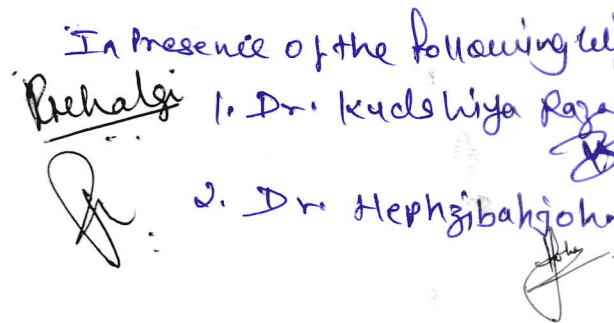 In Presence of the following wi
Prehalgi
1. Dr. Kudshiya Raza
2. Dr. Hephzibahjoh